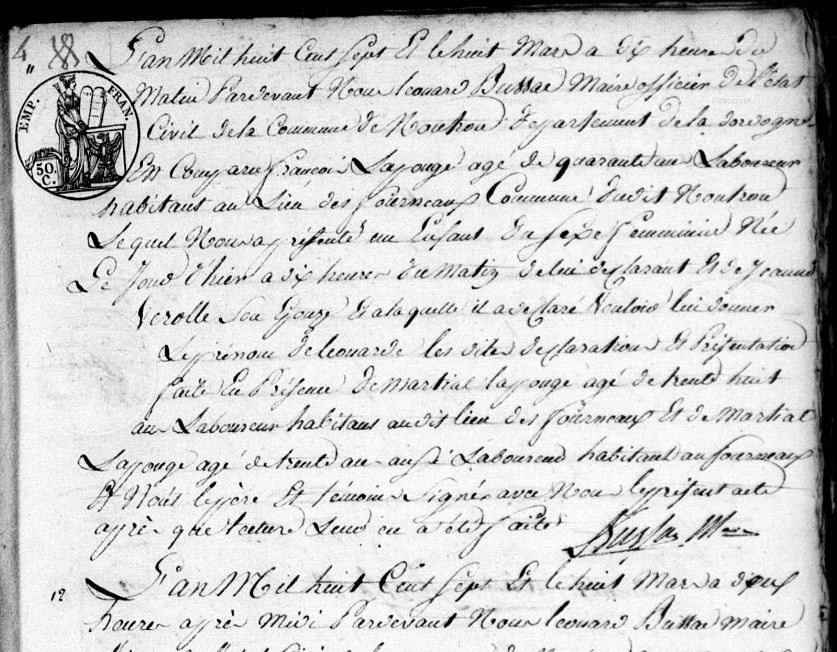 4
EMP. FRAN.
50. C.
L'an Mil huit Cent Sept Et le huit Mars a dix heures du
Matin Pardevant Nous leonard Bussac Maire officier de l'état
Civil de la Commune de Nontron departement de la dordogne
Est Comparu françois Lapouge agé de quarante ans Laboureur
habitant au Lieu des fourneaux Commune dudit Nontron
Lequel Nous a présenté un Enfant du Sexe feminin Née
Le Jour d'hier a dix heures du Matin de lui declarant Et de Jeanne
Verolle Son Epouze Et a laquelle il a declaré Vouloir lui donner
Le prénom de leonarde les dites declaration Et Présentation
faite En Présence de Martial lapouge agé de trente huit
ans Laboureur habitant audit lieu des fourneaux Et de Martial
Lapouge agé de trente ans aussi Laboureur habitant au fourneaux
Et témoins Signés avec Nous le présent acte
après que lecture Leur en a été faite
Bussac Maire
12
L'an Mil huit Cent Sept Et le huit Mars a deux
heures après Midi Pardevant Nous leonard Bussac Maire